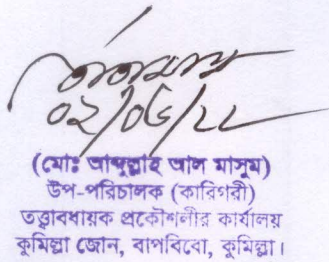 ০২/০৬/২২
(মোঃ আব্দুল্লাহ আল মাসুম)
উপ-পরিচালক (কারিগরী)
তত্ত্বাবধায়ক প্রকৌশলীর কার্যালয়
কুমিল্লা জোন, বাপবিবো, কুমিল্লা।